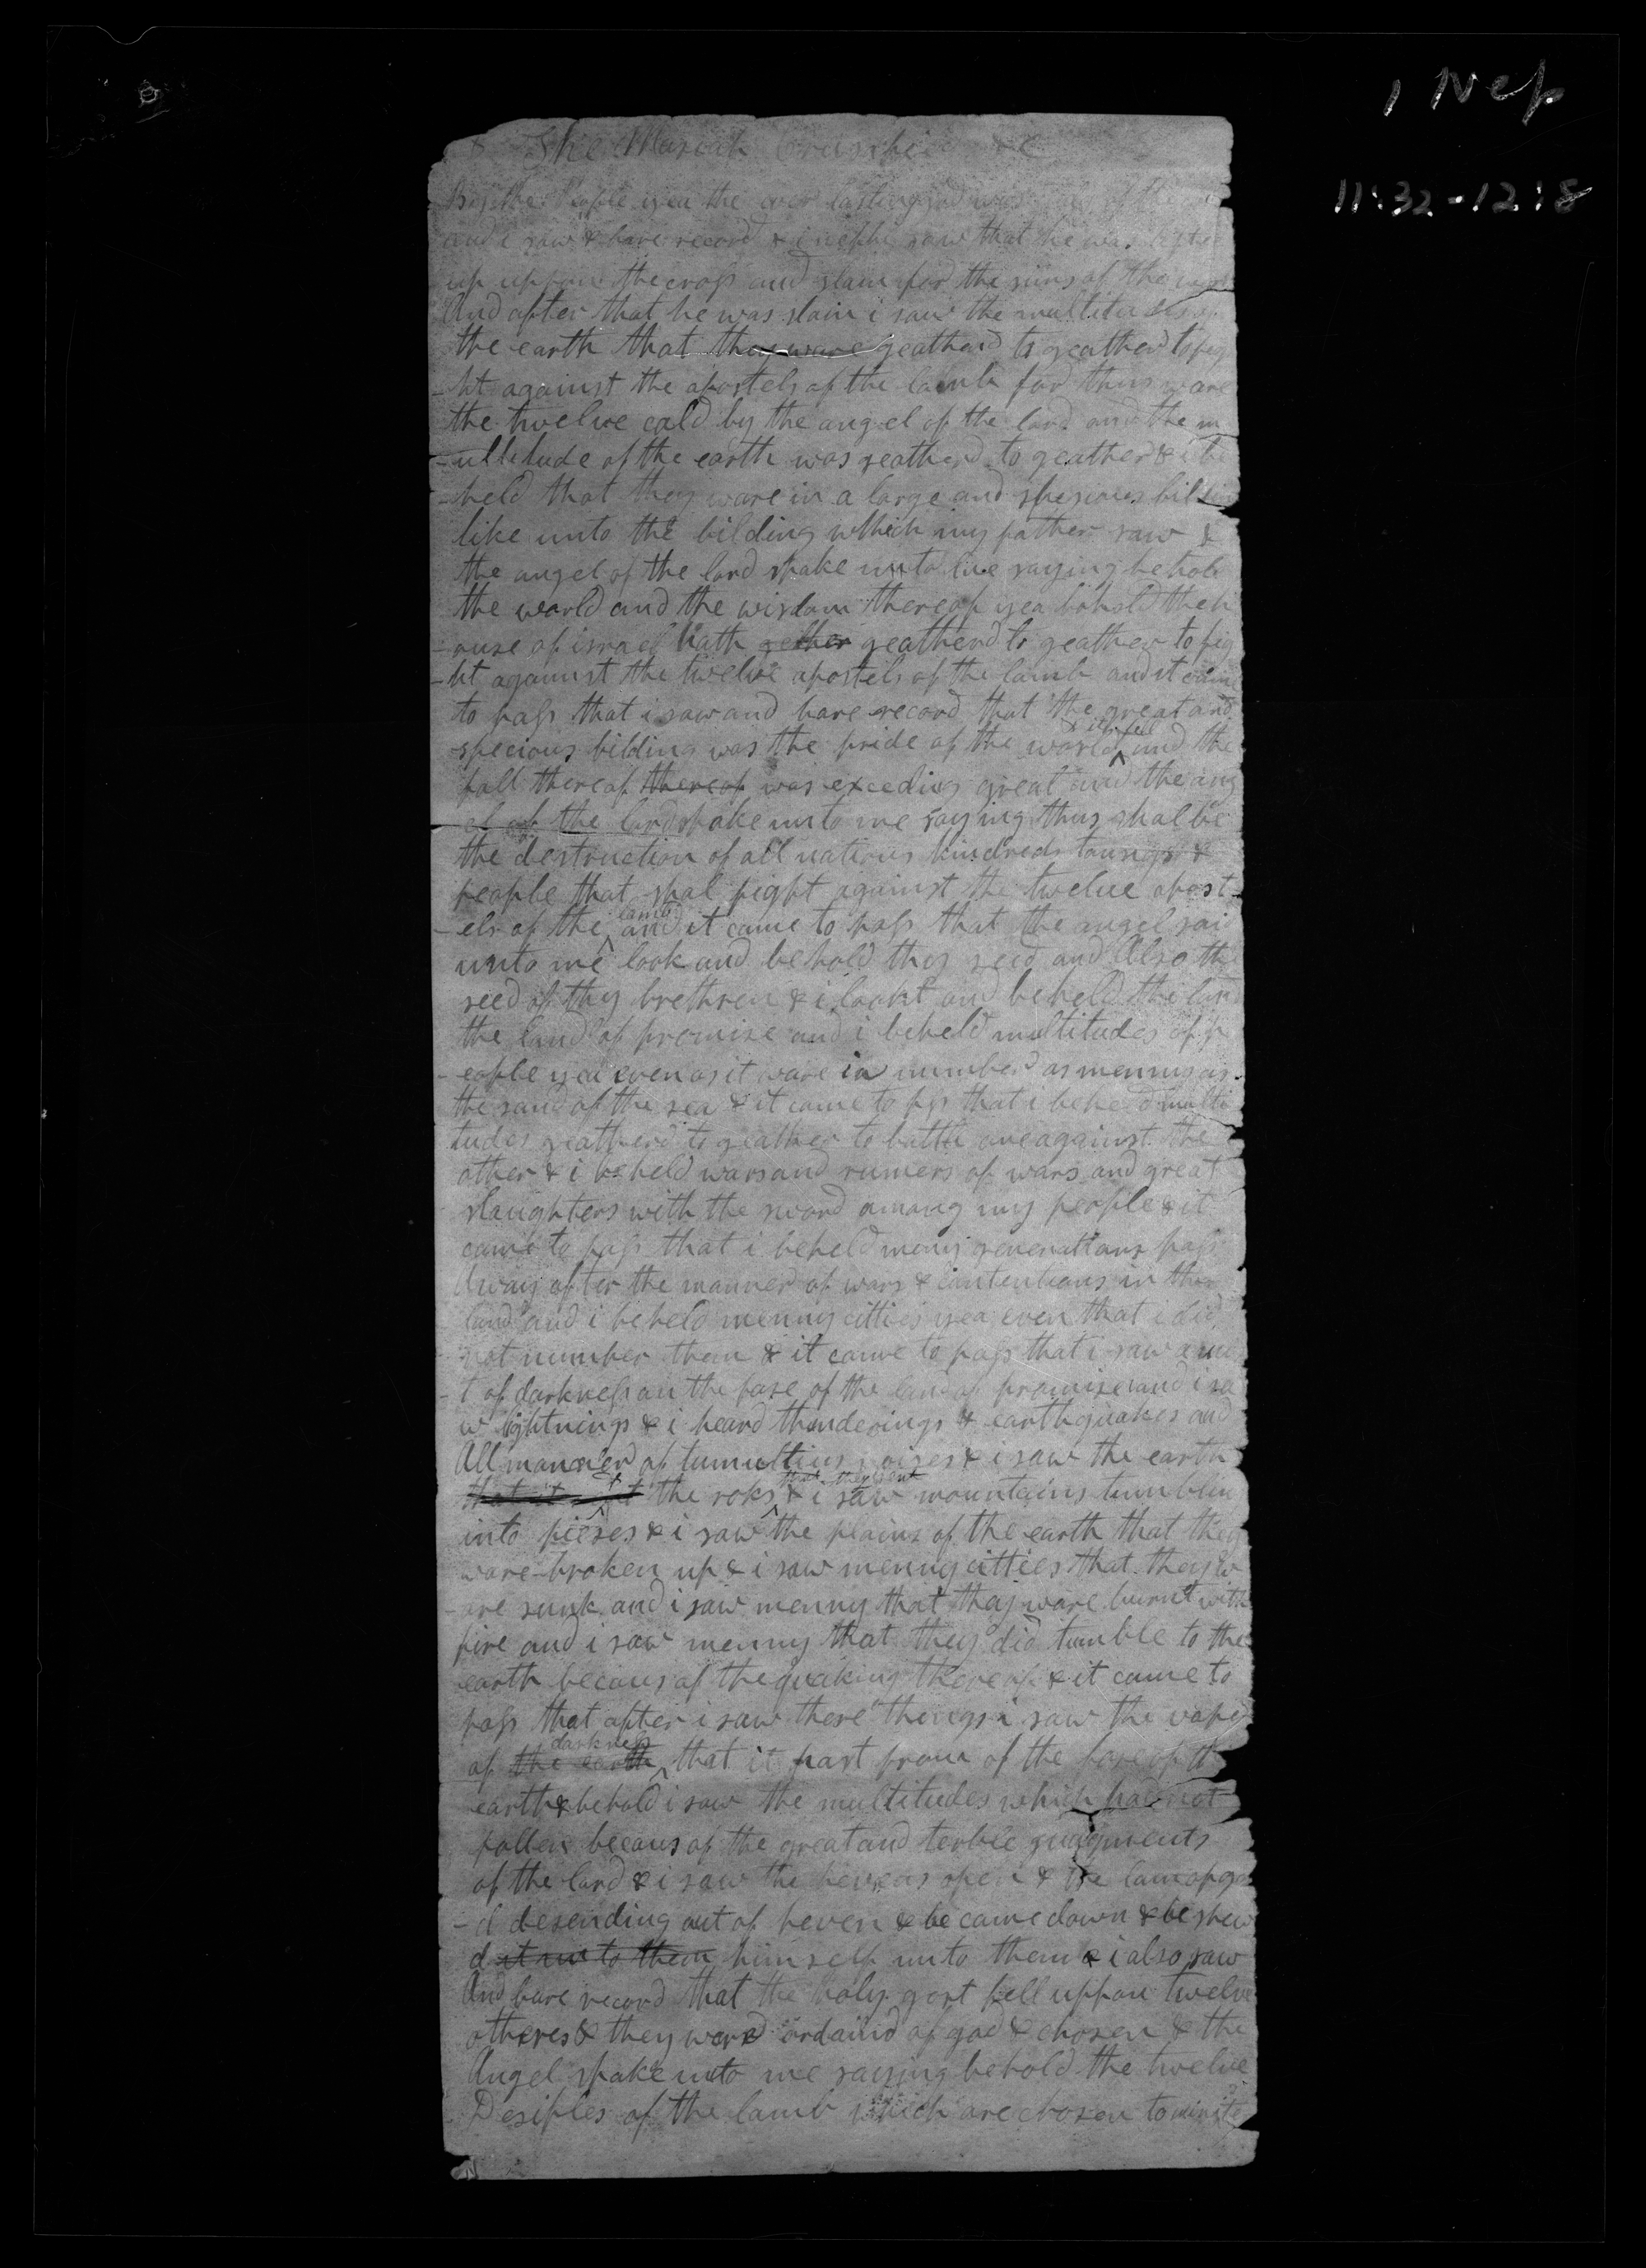 1 Nep
11:32-12:8
The Masiah Crusified &c
By the People yea the ever lasting god was of the
and i saw & bare record & i nephi saw that he was lifted
up uppon the cross and slain for the sins of the
And after that he was slain i saw the multitudes of
the earth that they ware geatherd to geather to fig
-ht against the apostels of the lamb for thus ware
the twelve cald by the angel of the lord and the m
-ultitude of the earth was geatherd to geather & i be
-held that they ware in a large and spesious bildin
like unto the bilding which my father saw &
the angel of the lord spake unto me saying behold
the world and the wisdom thereof yea behold the h
-ouse of israel hath gether geatherd to geather to fig
-ht against the twelve apostels of the lamb and it came
to pass that i saw and bare record that the great and
specious bilding was the pride of the world & it fell and the
fall thereof thereof was exceding great and the ang
el of the lord spake unto me saying thus shal be
the destruction of all nations kindreds toungs &
people that shal fight against the twelve apost-
-els of the lamb and it came to pass that the angel said
unto me look and behold thy seed and Also the
seed of thy brethren & i lookt and beheld the lan
the land of promise and i beheld multitudes of p
-eople yea even as it ware in number as menny as
the sand of the sea & it came to pass that i beheld multi
tudes geatherd to geather to battle one against the
other & i beheld wars and rumers of wars and great
slaughters with the sword among my people & it
came to pass that i beheld meny generations pass
Away after the manner of wars & contentions in the
land and i beheld menny citties yea even that i did
not number them & it came to pass that i saw a mis
-t of darkness on the fase of the land of promise and i sa
w lightnings & i heard thunderings & earthquakes and
All manner of tumultius noises & i saw the earth
that it the roks that they rent & i saw mountains tumblin
into pieses & i saw the plains of the earth that they
ware broken up & i saw menny citties that they w
-are sunk and i saw menny that thay ware burnt with
fire and i saw menny that they did tumble to the
earth becaus of the quaking thereof & it came to
pass that after i saw these things i saw the vaper
of the earth darkness that it past from of the face of th
earth & behold i saw the multitudes which had not
fallen becaus of the great and terble judgments
of the lord & i saw the hevens open & the lam of go
-d desending out of heven & he came down & he shew
d it unto them him self unto them & i also saw
And bare record that the holy gost fell uppon twelve
otheres & they ware ordaind of god & chosen & the
Angel spake unto me saying behold the twelve
Desiples of the lamb which are chosen to minist